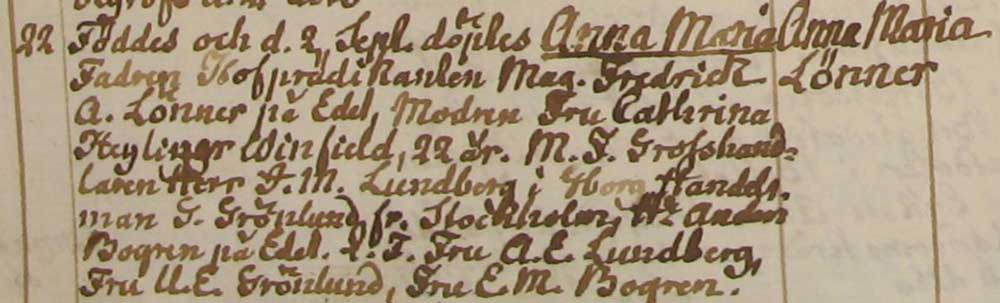 22 Föddes och d. 2 Sept. döptes Anna Maria Anna Maria
Fadren Hofpredikanten Mag. Fredrick Lönner
A. Lönner på Edel, Modren Fru Cathrina
Heyliger Winfield, 22 år. M. F. Grosshand-
laren Herr J. M. Lundberg i Gborg Handels
man G. Grönlund fr. Stockholm, Hr Anders
Bogren på Edel. Q. F. Fru A. E. Lundberg,
Fru U. E. Grönlund, Fru E. M. Bogren.